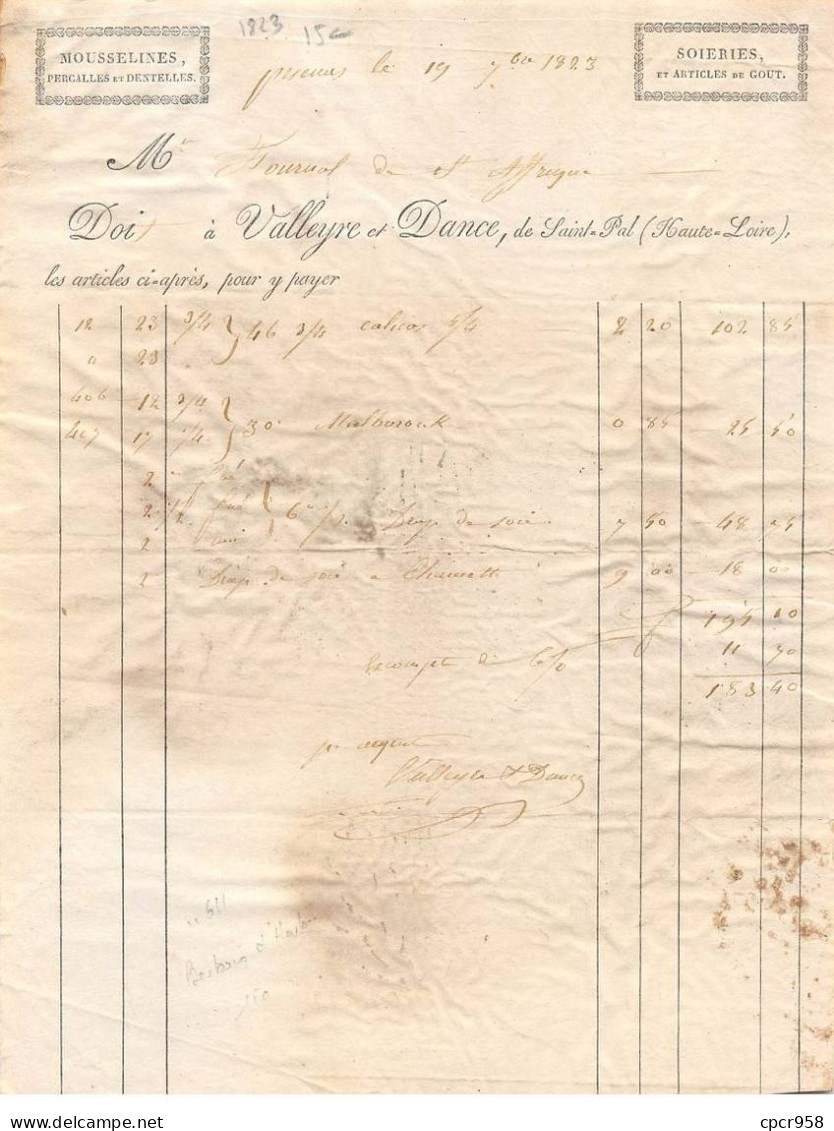 1823 15€
MOUSSELINES,
PERCALLES ET DENTELLES.
SOIERIES,
ET ARTICLES DE GOUT.
le 19 7bre 1823
Mr Fournol de St Affrique
Doit à Valleyre et Dance, de Saint-Pal (Haute-Loire),
les articles ci-après, pour y payer
12 23 3/4 } 46 3/4 calicos 5/4 2 20 102 85
" 23
406 12 3/4
407 17 1/4 } 30 Malborouk 0 85 25 50
2
2 1/2 6 1/2 Drap de soie 7 50 48 75
2 uni
2 Drap de soie a 9 00 18 00
195 10
Escompte de 6 % 11 70
183 40
Valleyre & Dance
cpcr958